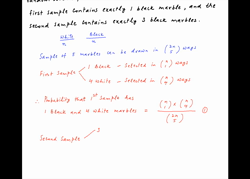 First Sample contains exactly 1 black marble, and the
second sample contains exactly 3 black marbles.
White Black
n n
Sample of 5 marbles can be drawn in (2n 5) ways
1 Black - Selected in (n 1) ways
First Sample
4 White - Selected in (n 4) ways
∴ Probability that 1st Sample has
1 Black and 4 white marbles = (n 1) × (n 4) / (2n 5) ①
Second Sample